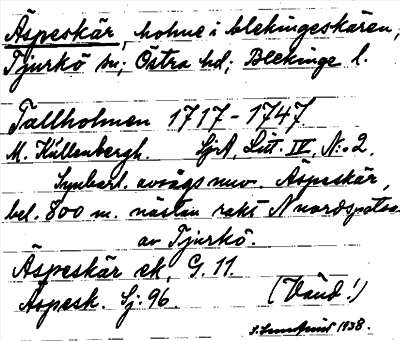 Äspeskär, holme i blekingeskären,
Tjurkö sn; Östra hd; Blekinge l.
Tallholmen 1717-1747
M. Kullenbergh. SjA, Litt. IV, N:o 2.
Synbarl. avsågs nuv. Äspeskär,
bel. 800 m. nästan rakt N nordspetsen
av Tjurkö.
Äspeskär ek. G. 11.
Äspesk. Sj. 96. (Vänd!)
1938.